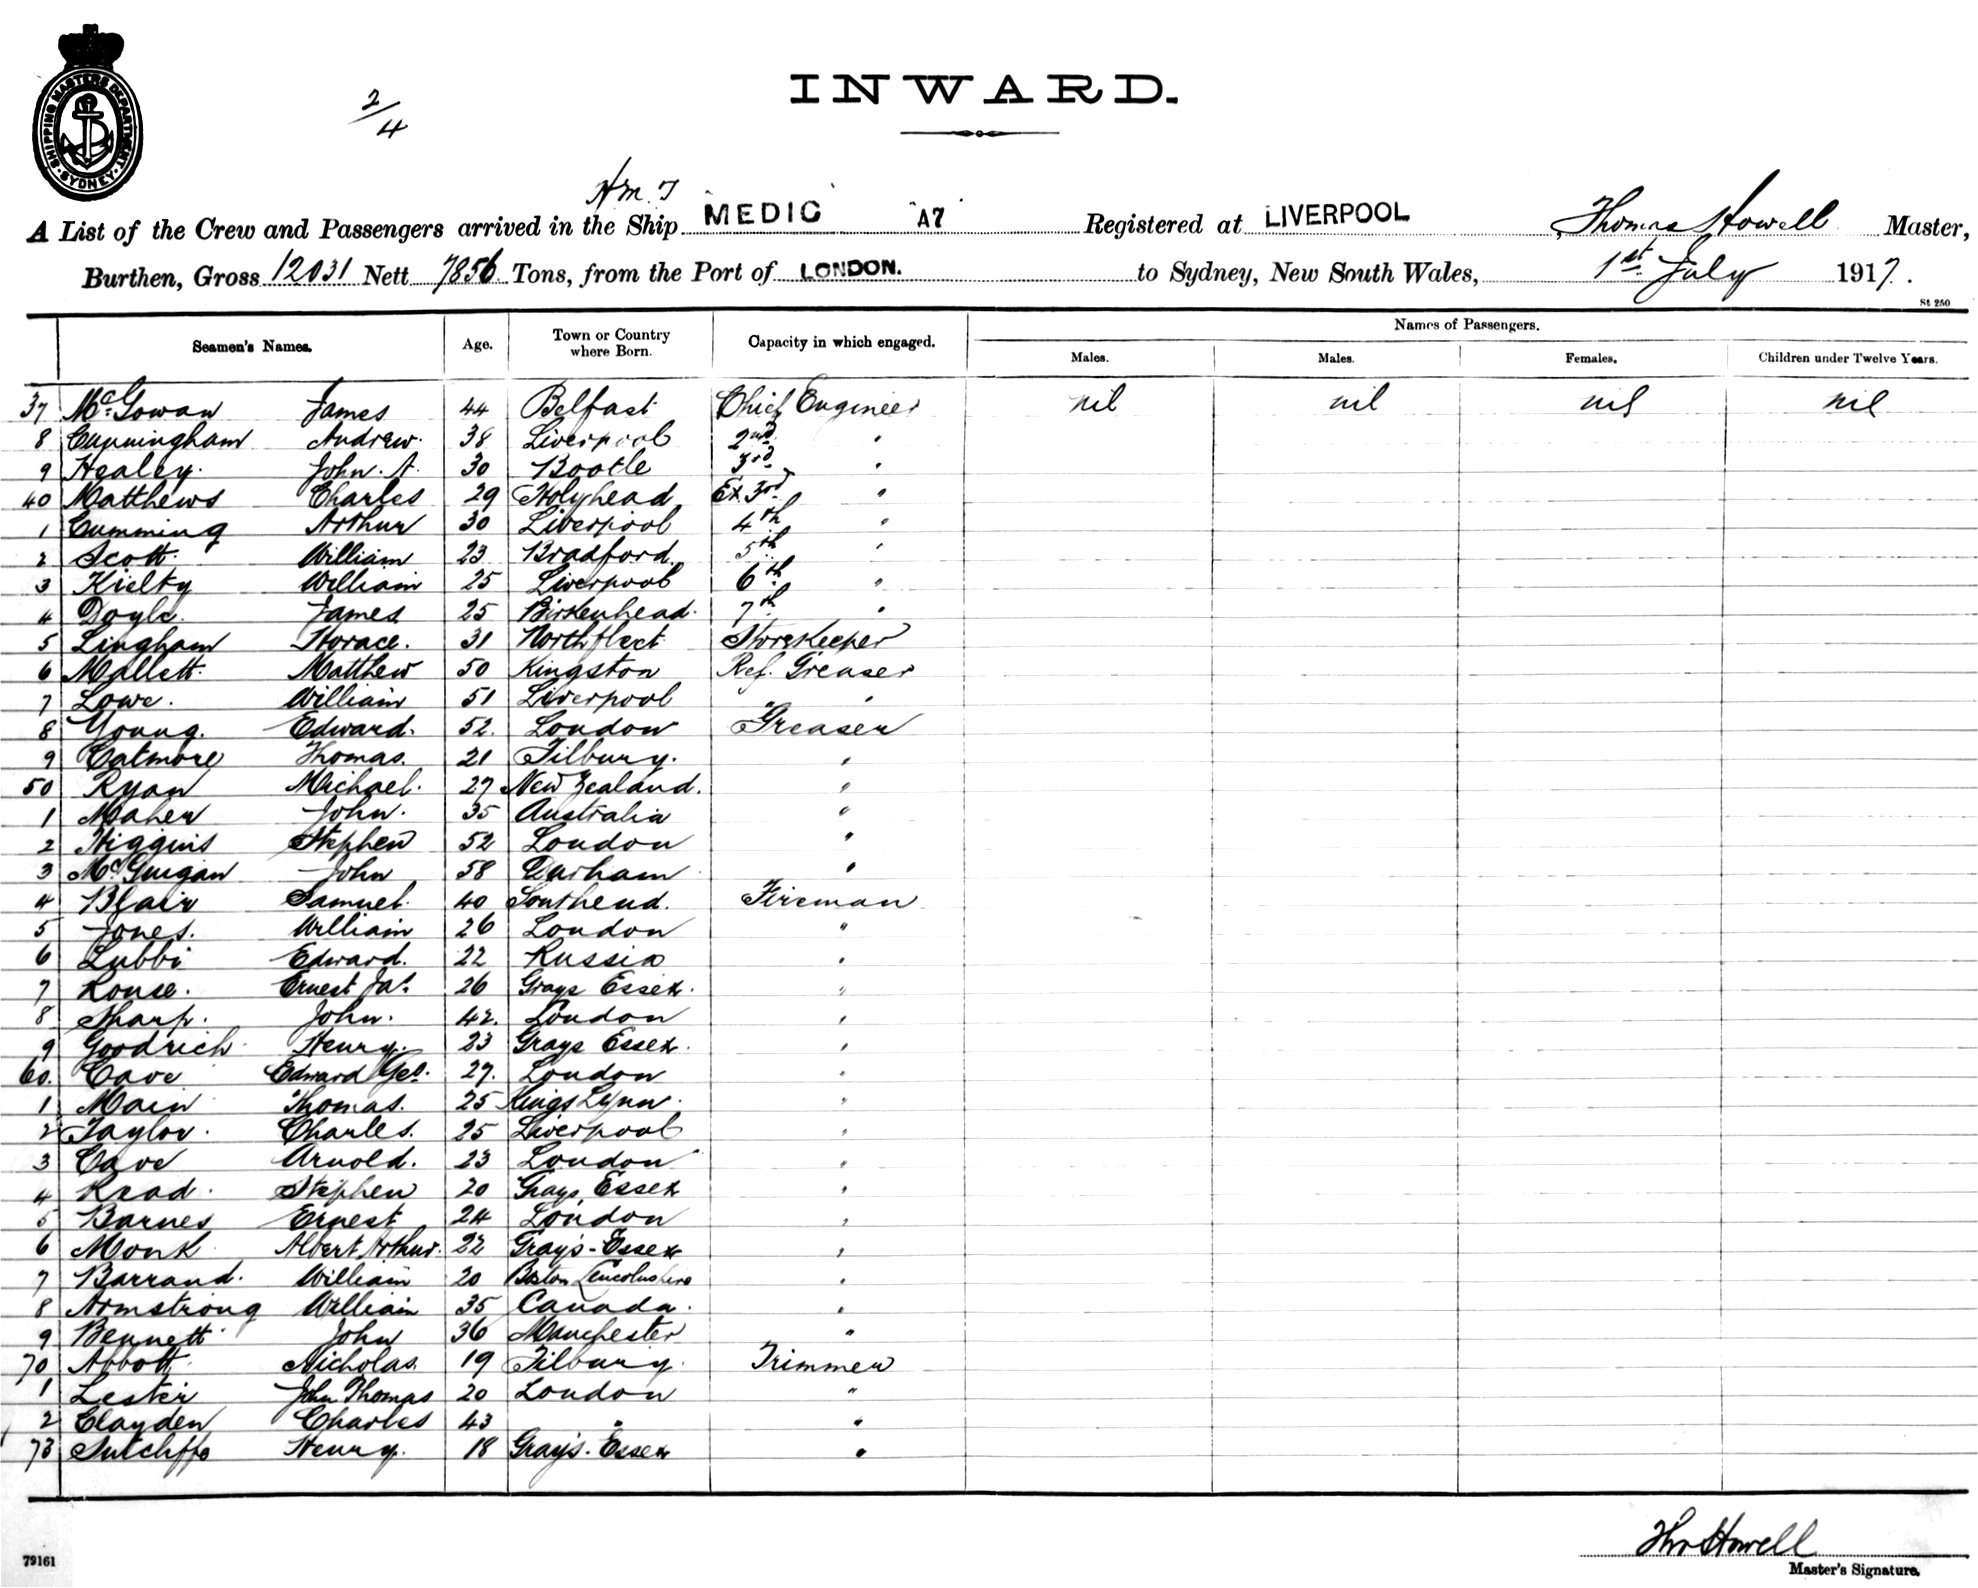 SHIPPING MASTERS DEPARTMENT · SYDNEY ·
2/4
INWARD.
H.M.T
A List of the Crew and Passengers arrived in the Ship MEDIC A7 Registered at LIVERPOOL Thomas Howell Master,
Burthen, Gross 12031 Nett 7856 Tons, from the Port of LONDON. to Sydney, New South Wales, 1st July 1917.
St 250
Seamen's Names. Age. Town or Country where Born. Capacity in which engaged. Names of Passengers.
Males. Males. Females. Children under Twelve Years.
37 McGowan James 44 Belfast Chief Engineer nil nil nil nil
8 Cunningham Andrew. 38 Liverpool 2nd "
9 Healey. John. A. 30 Bootle 3rd "
40 Matthews Charles 29 Holyhead Ex. 3rd "
1 Cumming Arthur 30 Liverpool 4th "
2 Scott William 23 Bradford. 5th "
3 Kielty William 25 Liverpool 6th "
4 Doyle. James 25 Birkenhead. 7th "
5 Lingham Horace. 31 Northfleet Storekeeper
6 Mallett. Matthew 50 Kingston Ref. Greaser
7 Lowe. William 51 Liverpool " "
8 Young. Edward. 52. London Greaser
9 Catmore Thomas. 21 Tilbury. "
50 Ryan Michael. 27 New Zealand. "
1 Maher John. 35 Australia "
2 Higgins Stephen 52 London "
3 McGuigan John 58 Durham "
4 Blair Samuel. 40 Southend. Fireman
5 Jones. William 26 London "
6 Lubbi Edward. 22 Russia "
7 Rouse. Ernest Jas. 26 Grays Essex. "
8 Sharp. John. 42. London "
9 Goodrich Henry. 23 Grays Essex. "
60. Cave Edward Geo. 27. London "
1 Main Thomas. 25 Kings Lynn. "
2 Taylor. Charles. 25 Liverpool "
3 Cave Arnold. 23 London "
4 Read. Stephen 20 Grays, Essex "
5 Barnes Ernest 24 London "
6 Monk Albert Arthur. 22 Gray's - Essex "
7 Barrand. William 20 Boston Lincolnshire "
8 Armstrong William 35 Canada. "
9 Bennett John 36 Manchester "
70 Abbott. Nicholas. 19 Tilbury. Trimmer
1 Lester John Thomas 20 London "
2 Clayden Charles 43 " "
73 Sutcliffe Henry. 18 Gray's. Essex "
Thos Howell
Master's Signature.
79161